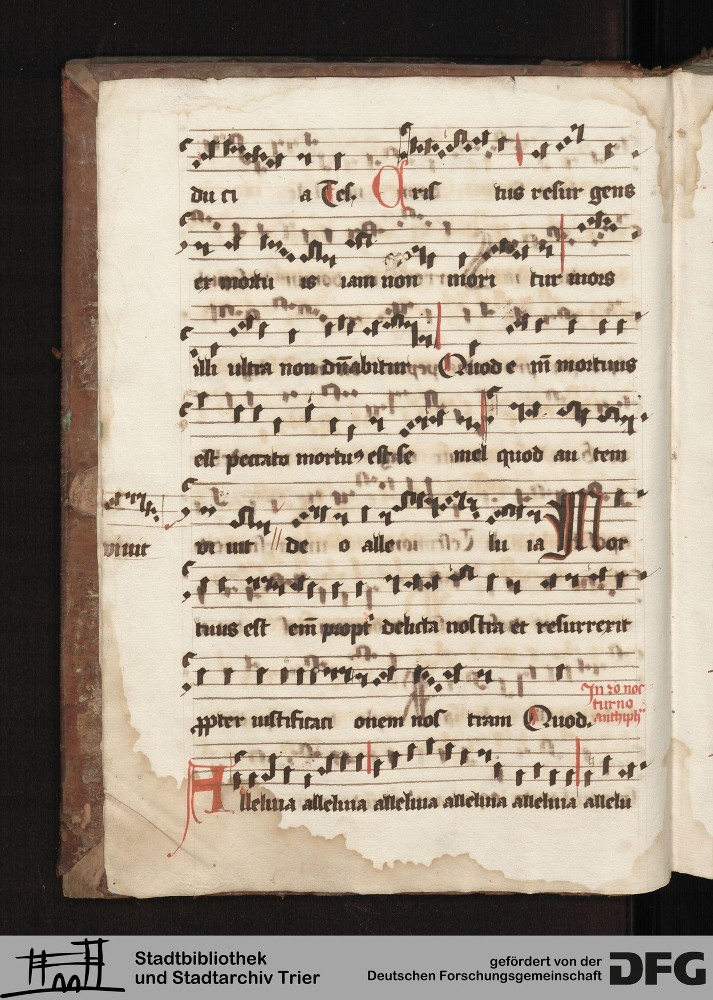 du ci a Tes. Cris tus resur gens
ex mortu is iam non mori tur mors
illi ultra non dn̄abitur Quod e nī mortuus
est peccato mortuꝰ est se mel quod au tem
viuit
vi uit // de o alle lu ia Mor
tuus est em̄ propt̉ delicta nostra et resurrexit
ꝓpter iustificaci onem nos tram Quod.
In 2o noc
turno
antiph
Alleluia alleluia alleluia alleluia alleluia allelu
Stadtbibliothek
und Stadtarchiv Trier
gefördert von der
Deutschen Forschungsgemeinschaft
DFG